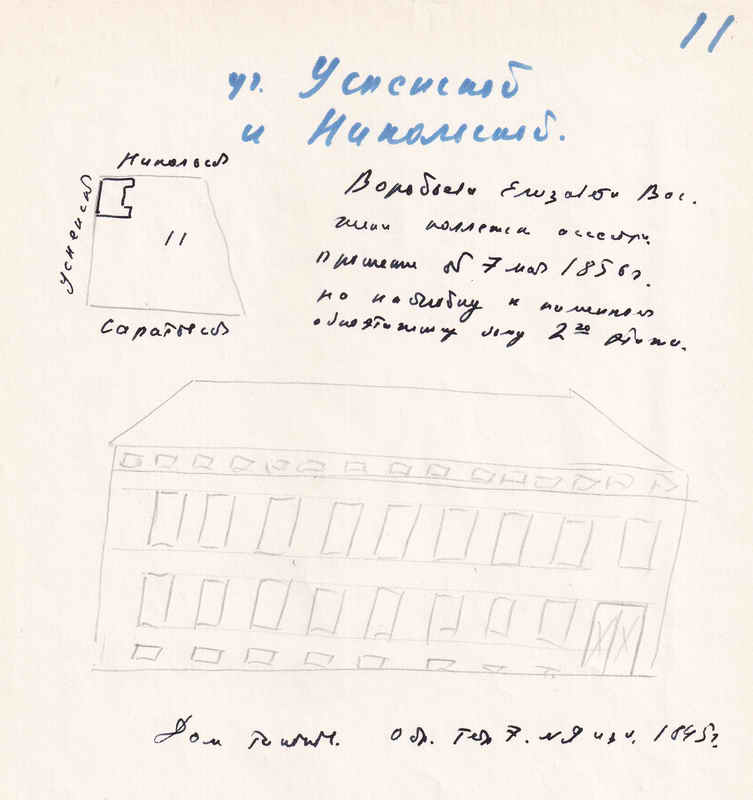 11
уг. Успенской
и Никольской.
Никольск
Успенск
11
Саратовск
Воробьева Елизавета Вас.
жена коллежск ассесора
прошение об 7 мая 1856 г.
на надстройку к каменном
одноэтажному дому 2го этажа.
Дом типич. 7. №9 изд. 1845 г.